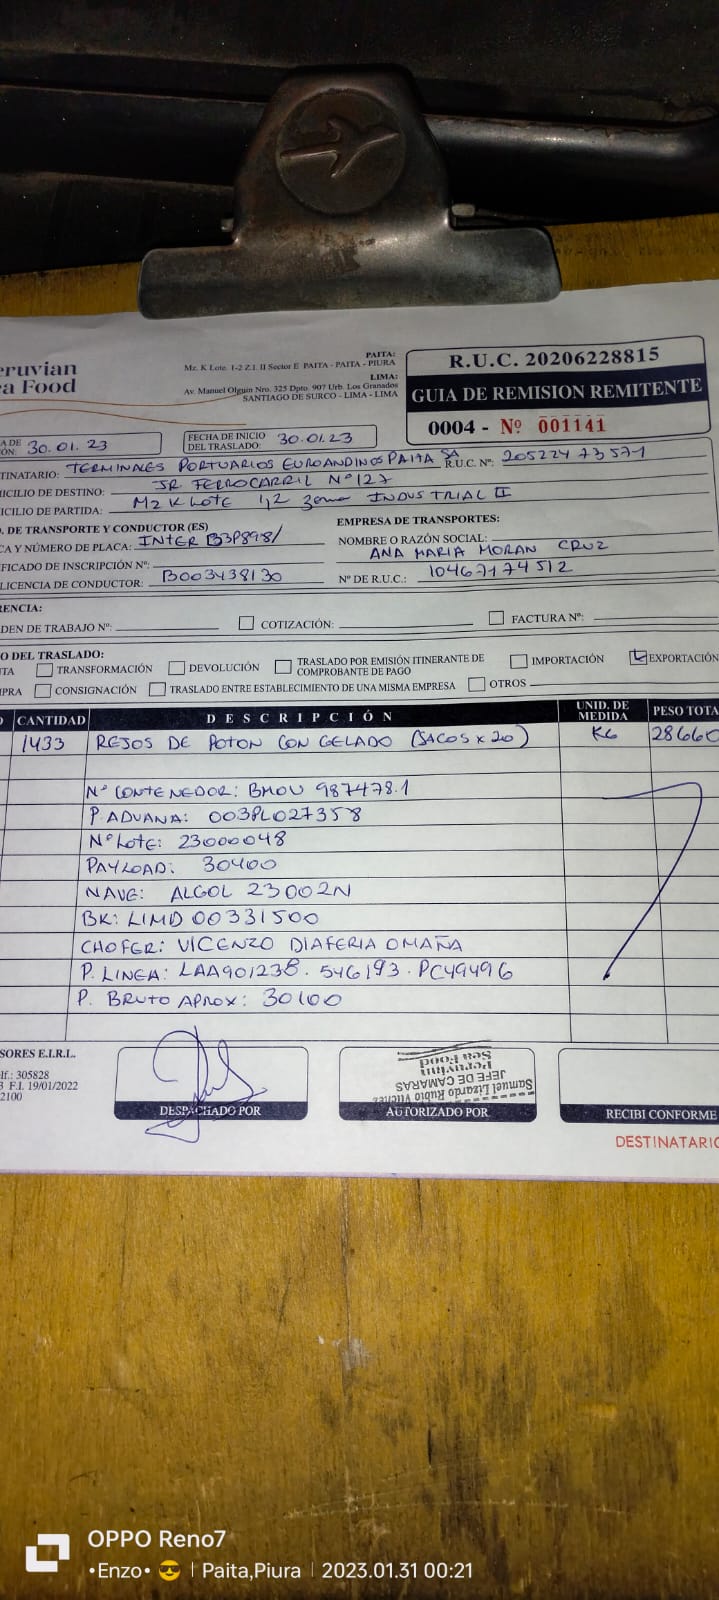 eruvian
a Food
PAITA:
Mz. K Lote. 1-2 Z.I. II Sector E PAITA - PAITA - PIURA
LIMA:
Av. Manuel Olguin Nro. 325 Dpto. 907 Urb. Los Granados
SANTIAGO DE SURCO - LIMA - LIMA
R.U.C. 20206228815
GUIA DE REMISION REMITENTE
0004 - Nº 001141
A DE
ÓN: 30.01.23
FECHA DE INICIO
DEL TRASLADO: 30.01.23
TINATARIO: TERMINALES PORTUARIOS EUROANDINOS PAITA SA R.U.C. Nº: 20522473571
ICILIO DE DESTINO: JR FERROCARRIL Nº 127
ICILIO DE PARTIDA: MZ K LOTE 1,2 ZONA INDUSTRIAL II
. DE TRANSPORTE Y CONDUCTOR (ES)
CA Y NÚMERO DE PLACA: INTER B3P898/
IFICADO DE INSCRIPCIÓN Nº:
LICENCIA DE CONDUCTOR: B003438130
EMPRESA DE TRANSPORTES:
NOMBRE O RAZÓN SOCIAL:
ANA MARIA MORAN CRUZ
Nº DE R.U.C.: 10467174512
RENCIA:
DEN DE TRABAJO Nº: COTIZACIÓN: FACTURA Nº:
O DEL TRASLADO:
TA TRANSFORMACIÓN DEVOLUCIÓN TRASLADO POR EMISIÓN ITINERANTE DE COMPROBANTE DE PAGO IMPORTACIÓN EXPORTACIÓN
PRA CONSIGNACIÓN TRASLADO ENTRE ESTABLECIMIENTO DE UNA MISMA EMPRESA OTROS
O CANTIDAD DESCRIPCIÓN UNID. DE MEDIDA PESO TOTA
1433 REJOS DE POTON CONGELADO (SACOS x 20) KG 28660
Nº CONTENEDOR: BMOU 987478.1
P. ADUANA: 003PL027358
Nº LOTE: 23000048
PAYLOAD: 30400
NAVE: ALGOL 23002N
BK: LIMD 00331500
CHOFER: VICENZO DIAFERIA OMAÑA
P. LINEA: LAA901238. 546193. PC49496
P. BRUTO APROX: 30100
SORES E.I.R.L.
lf.: 305828
3 F.I. 19/01/2022
2100
DESPACHADO POR
Samuel Lizardo Rubio Vilchez
JEFE DE CAMARAS
Peruvian
Sea Food
AUTORIZADO POR
RECIBI CONFORME
DESTINATARIO
OPPO Reno7
•Enzo• 😎 | Paita,Piura | 2023.01.31 00:21